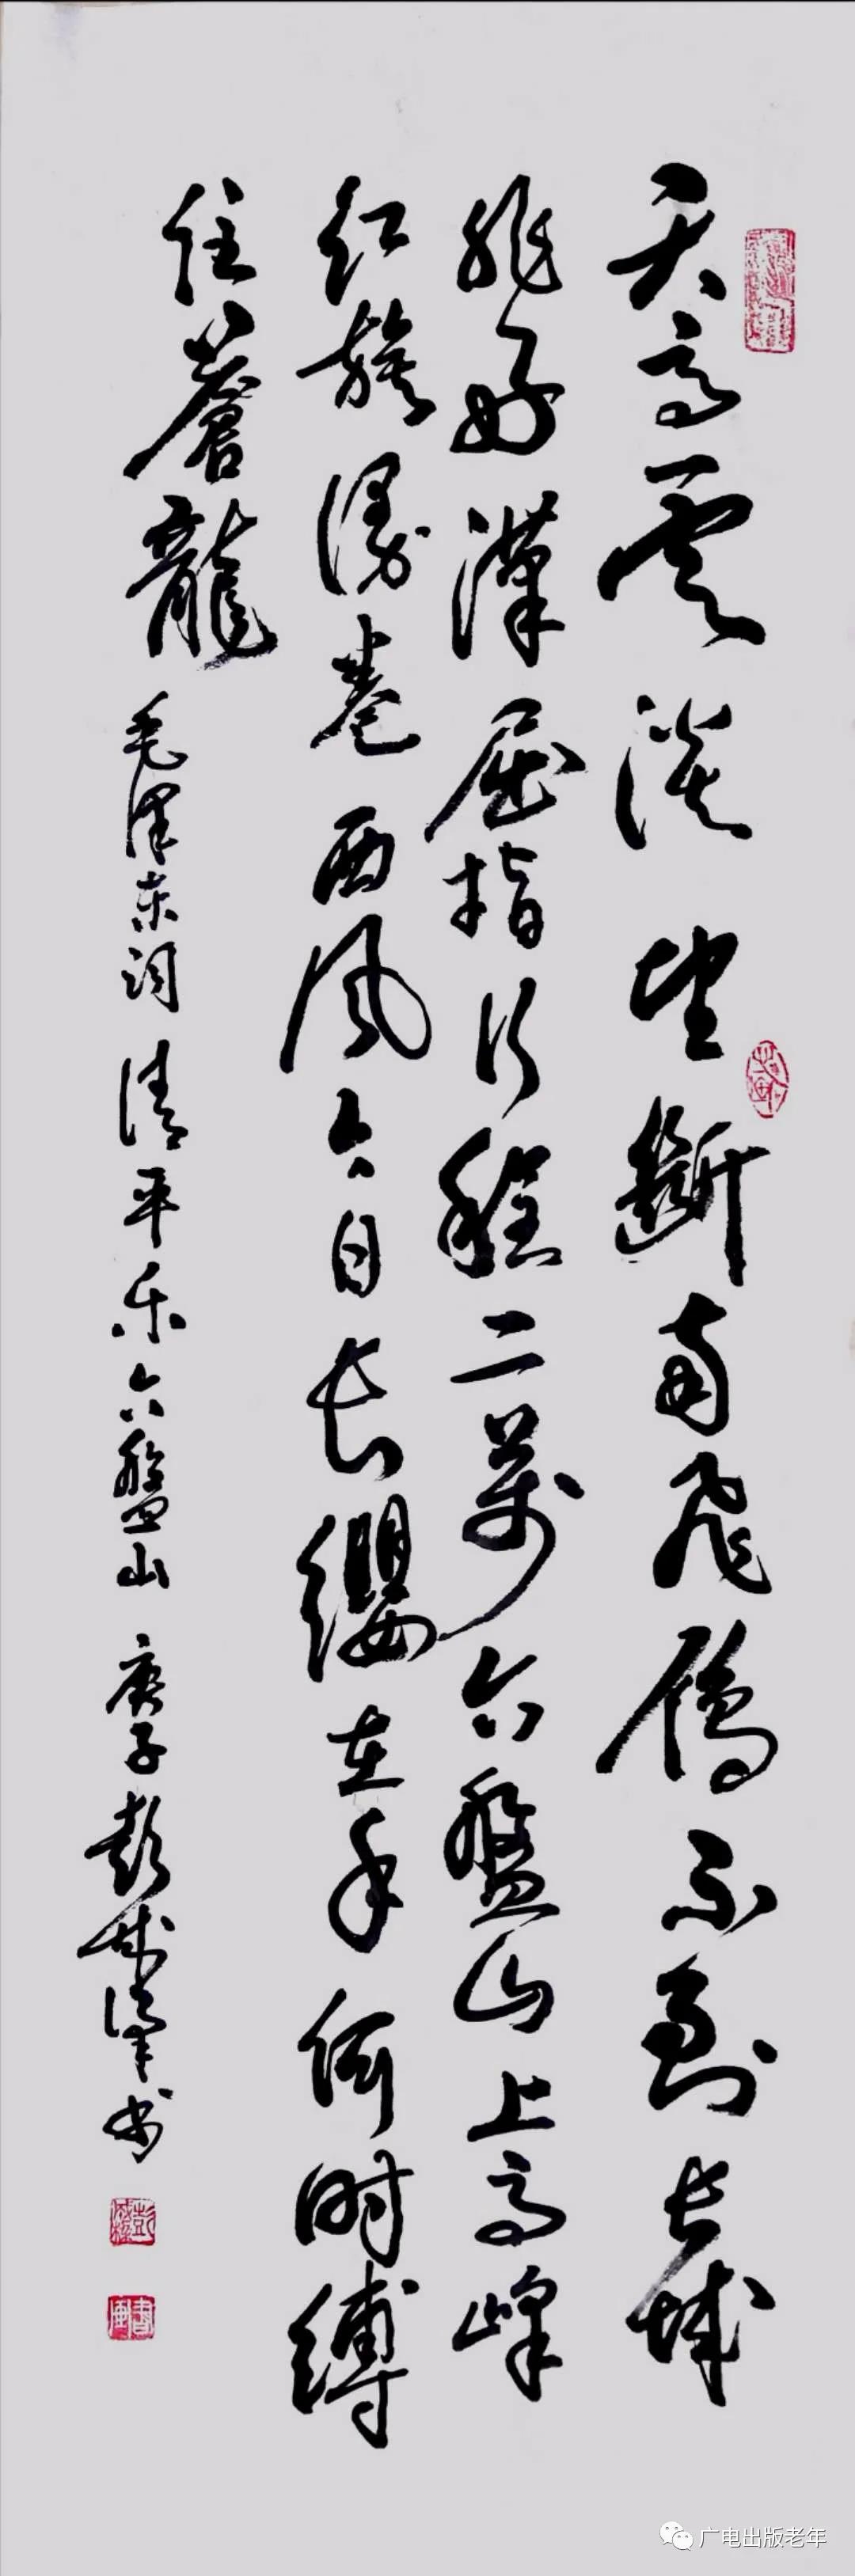 天高雲淡望斷南飛雁不到长城
非好漢屈指行程二萬六盤山上高峰
红旗漫卷西风今日长缨在手何时缚
住蒼龍 毛泽东词 清平乐六盤山 庚子 彭书
广电出版老年